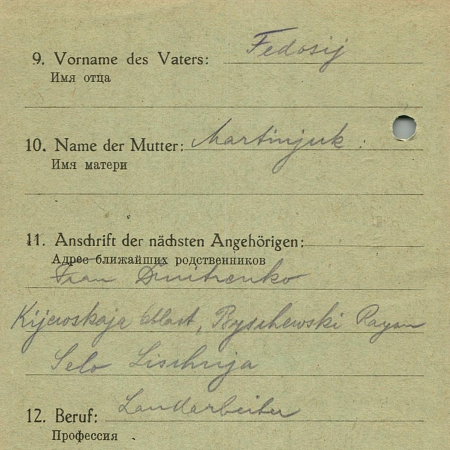 9. Vorname des Vaters: Fedosij
Имя отца
10. Name der Mutter: Martinjuk
Имя матери
11. Anschrift der nächsten Angehörigen:
Адрес ближайших родственников
Frau Dmitrenko
Kijewskaja Oblast, Byschewski Rayon
Selo Lischnija
12. Beruf: Landarbeiter
Профессия